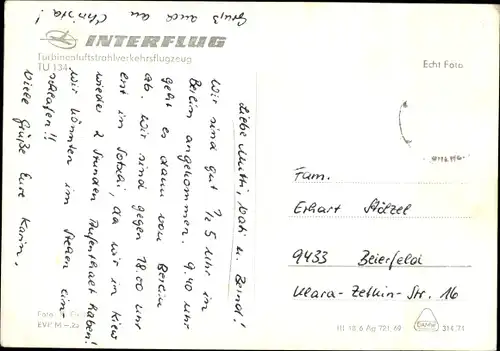 Gruß auch an
Christa!
INTERFLUG
Turbinenluftstrahlverkehrsflugzeug
TU 134
Echt Foto
Liebe Mutti, Vati u. Bernd!
Wir sind gut 1/2 5 Uhr in
Berlin angekommen. 9.40 Uhr
geht es dann von Berlin
ab. Wir sind gegen 18.00 Uhr
erst in Sotschi, da wir in Kiew
wieder 2 Stunden Aufenthalt haben!
Wir könnten im Stehen ein-
schlafen!!
Viele Grüße Eure Karin.
Fam.
Erhart Stölzel
9433 Beierfeld
Klara-Zetkin-Str. 16
Foto:
EVP M -,2
10 18 6 Ag 721 69
314 71